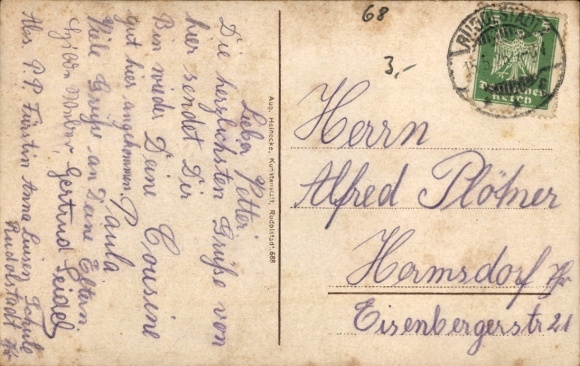 Lieber Vetter!
Die herzlichsten Grüße von
hier sendet Dir
Deine Cousine
Paula
Bin wieder
gut hier angekommen.
Viele Grüße an Deine Eltern
Gertrud Seidel
Abs. P.P. Fürstin Anna Luisen Schule
Rudolstadt Th
Aug. Heinecke, Kunstanstalt, Rudolstadt 688
68
3,-
RUDOLSTADT
Deutsches
Reich
Herrn
Alfred Plötner
Hermsdorf Th
Eisenbergerstr 21